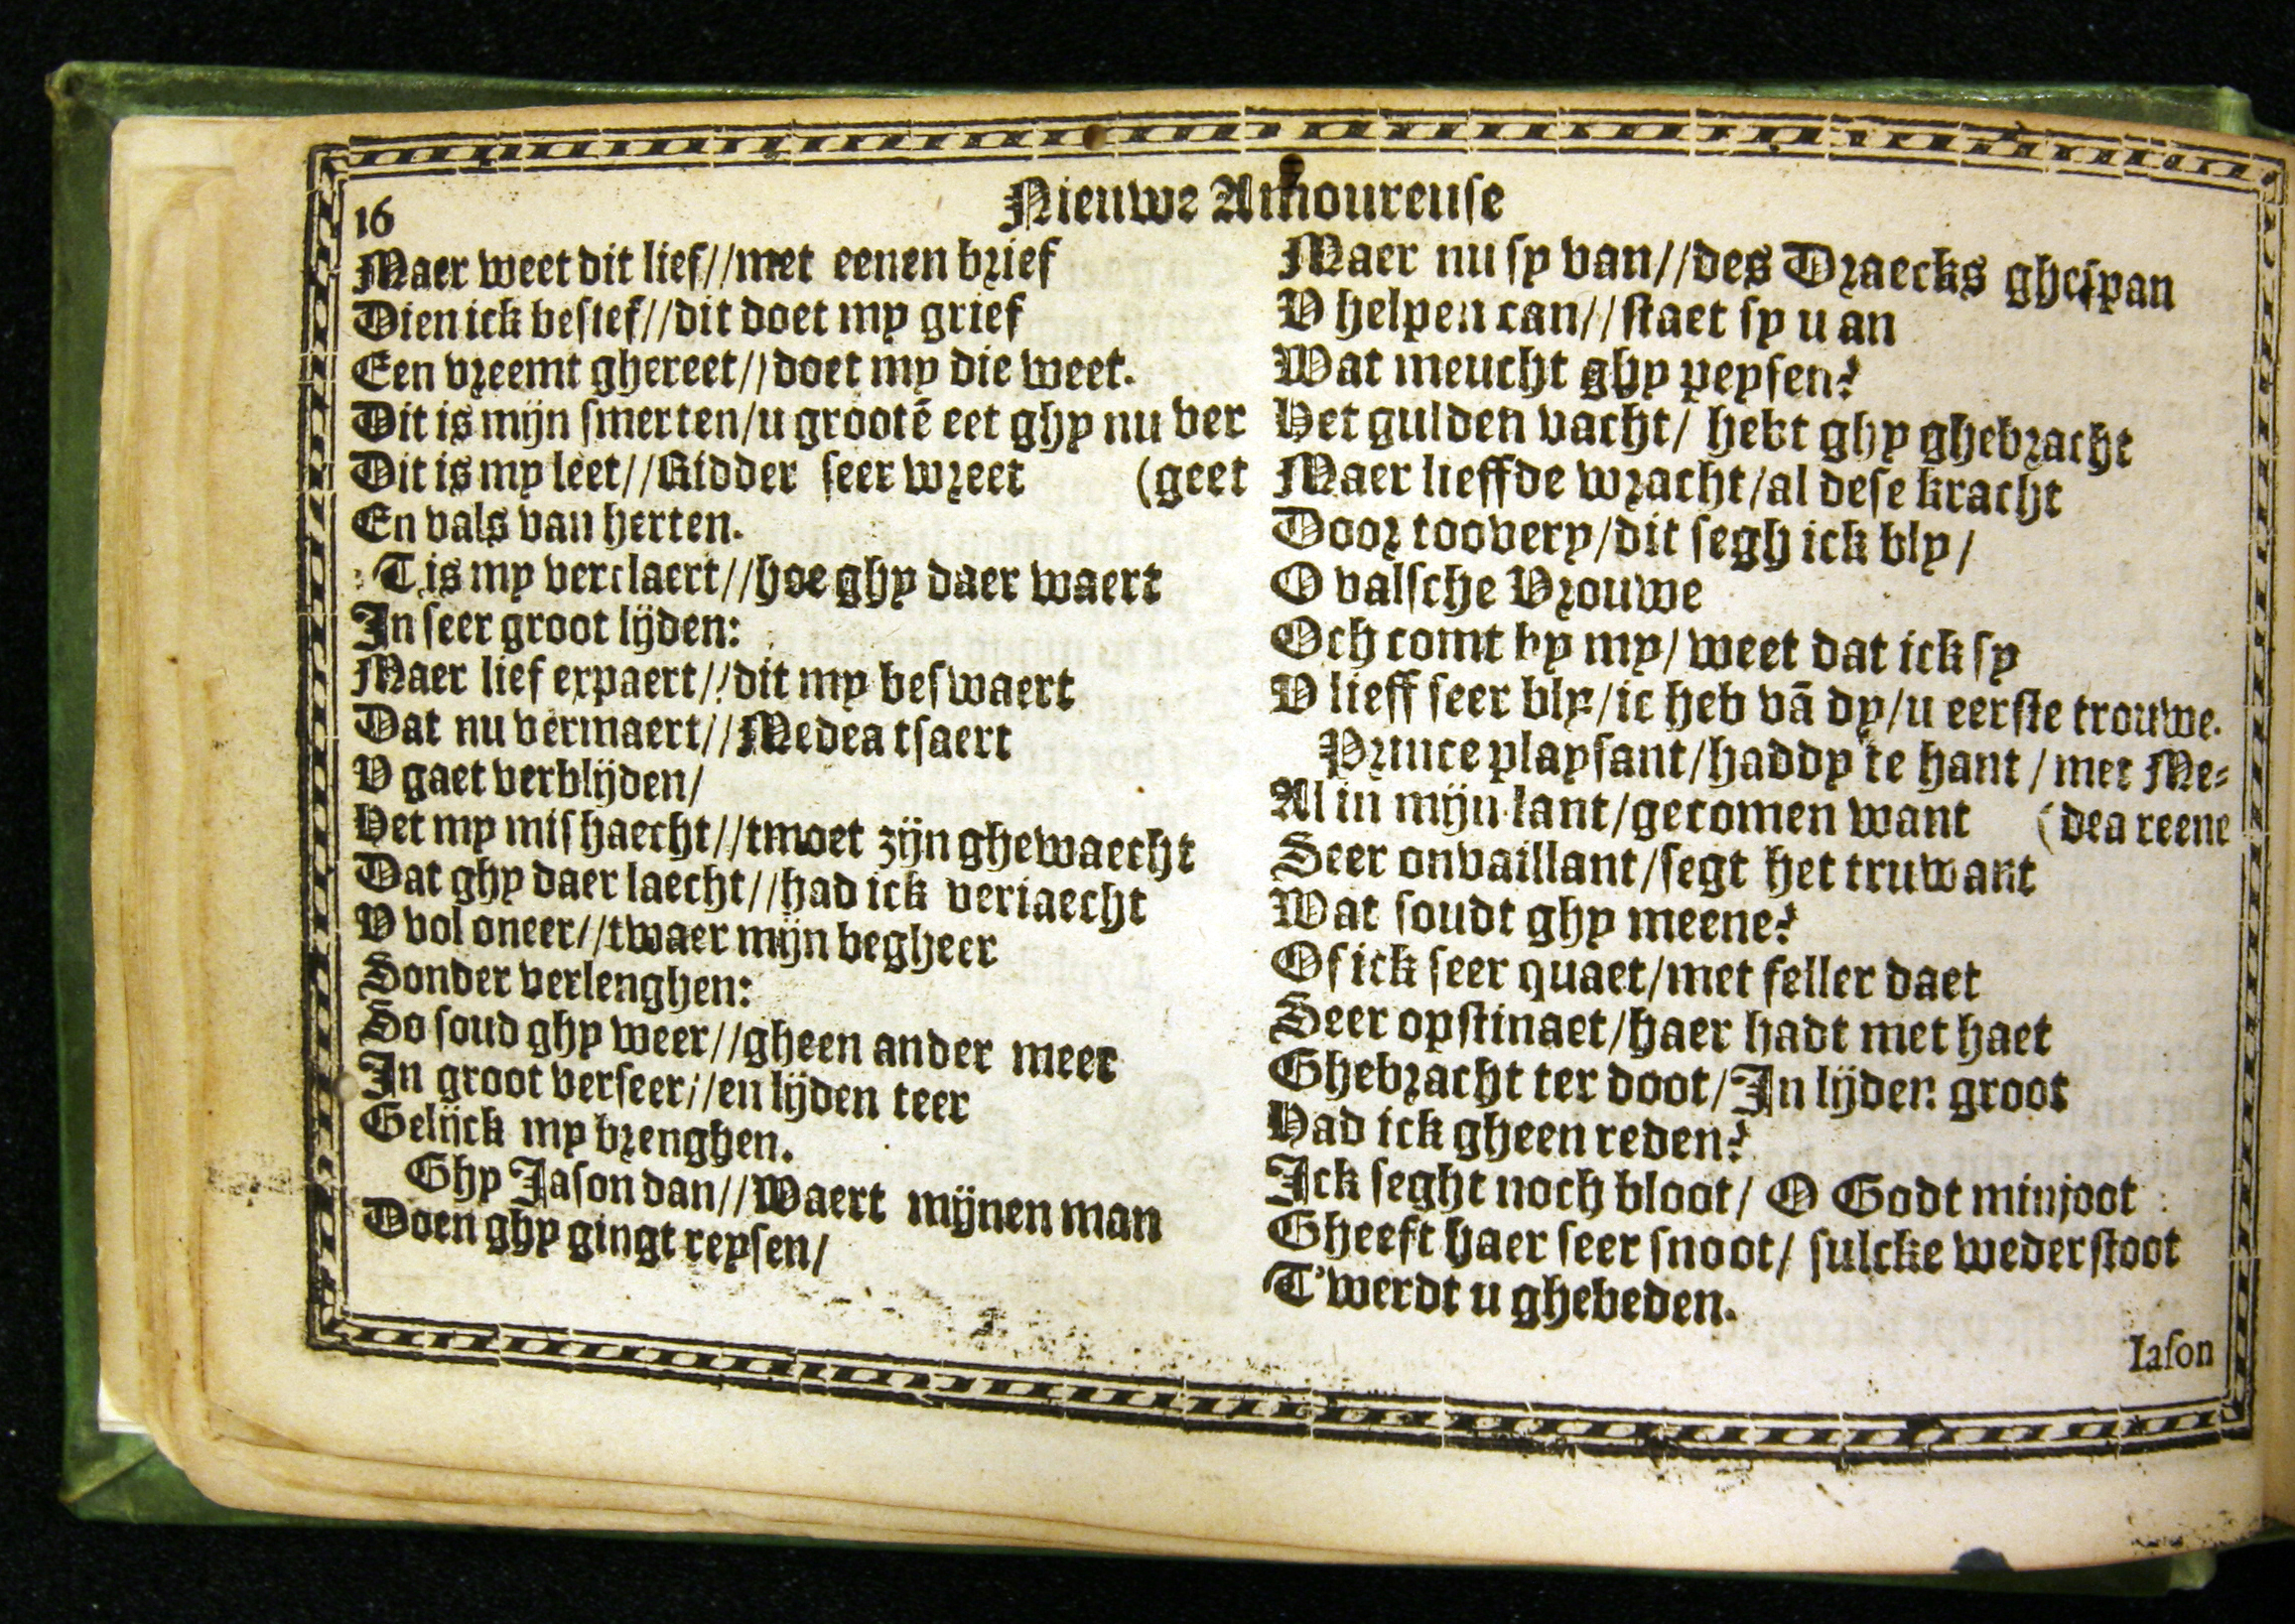 16
Nieuwe Amoureuse
Maer weet dit lief//met eenen brief
Dien ick besief//dit doet my grief
Een vreemt ghereet//doet my die weet.
Dit is mijn smerten/u grootē eet ghy nu ver
Dit is my leet//Ridder seer wreet (geet
En vals van herten.
T is my verclaert//hoe ghy daer waert
In seer groot lijden:
Maer lief expaert//dit my beswaert
Dat nu vermaert//Medea tsaert
V gaet verblijden/
Het my mishaecht//tmoet zijn ghewaecht
Dat ghy daer laecht//had ick veriaecht
V vol oneer//twaer mijn begheer
Sonder verlenghen:
So soud ghy weer//gheen ander meer
In groot verseer//en lijden teer
Gelijck my brenghen.
Ghy Jason dan//Waert mijnen man
Doen ghy gingt reysen/
Maer nu sy van//des Draecks ghespan
V helpen can//staet sy u an
Wat meucht ghy peysen?
Het gulden vacht/ hebt ghy ghebracht
Maer lieffde wracht/al dese kracht
Door toovery/dit segh ick bly/
O valsche Vrouwe
Och comt by my/ weet dat ick sy
V lieff seer bly/ic heb vā dy/u eerste trouwe.
Prince playsant/haddy te hant / met Me-
Al in mijn lant/gecomen want (dea reene
Seer onvaillant/segt het truwant
Wat soudt ghy meene?
Of ick seer quaet/met feller daet
Seer opstinaet/haer hadt met haet
Ghebracht ter doot/In lijden groot
Had ick gheen reden?
Ick seght noch bloot/ O Godt minjoot
Gheeft haer seer snoot/ sulcke wederstoot
T'werdt u ghebeden.
Iason